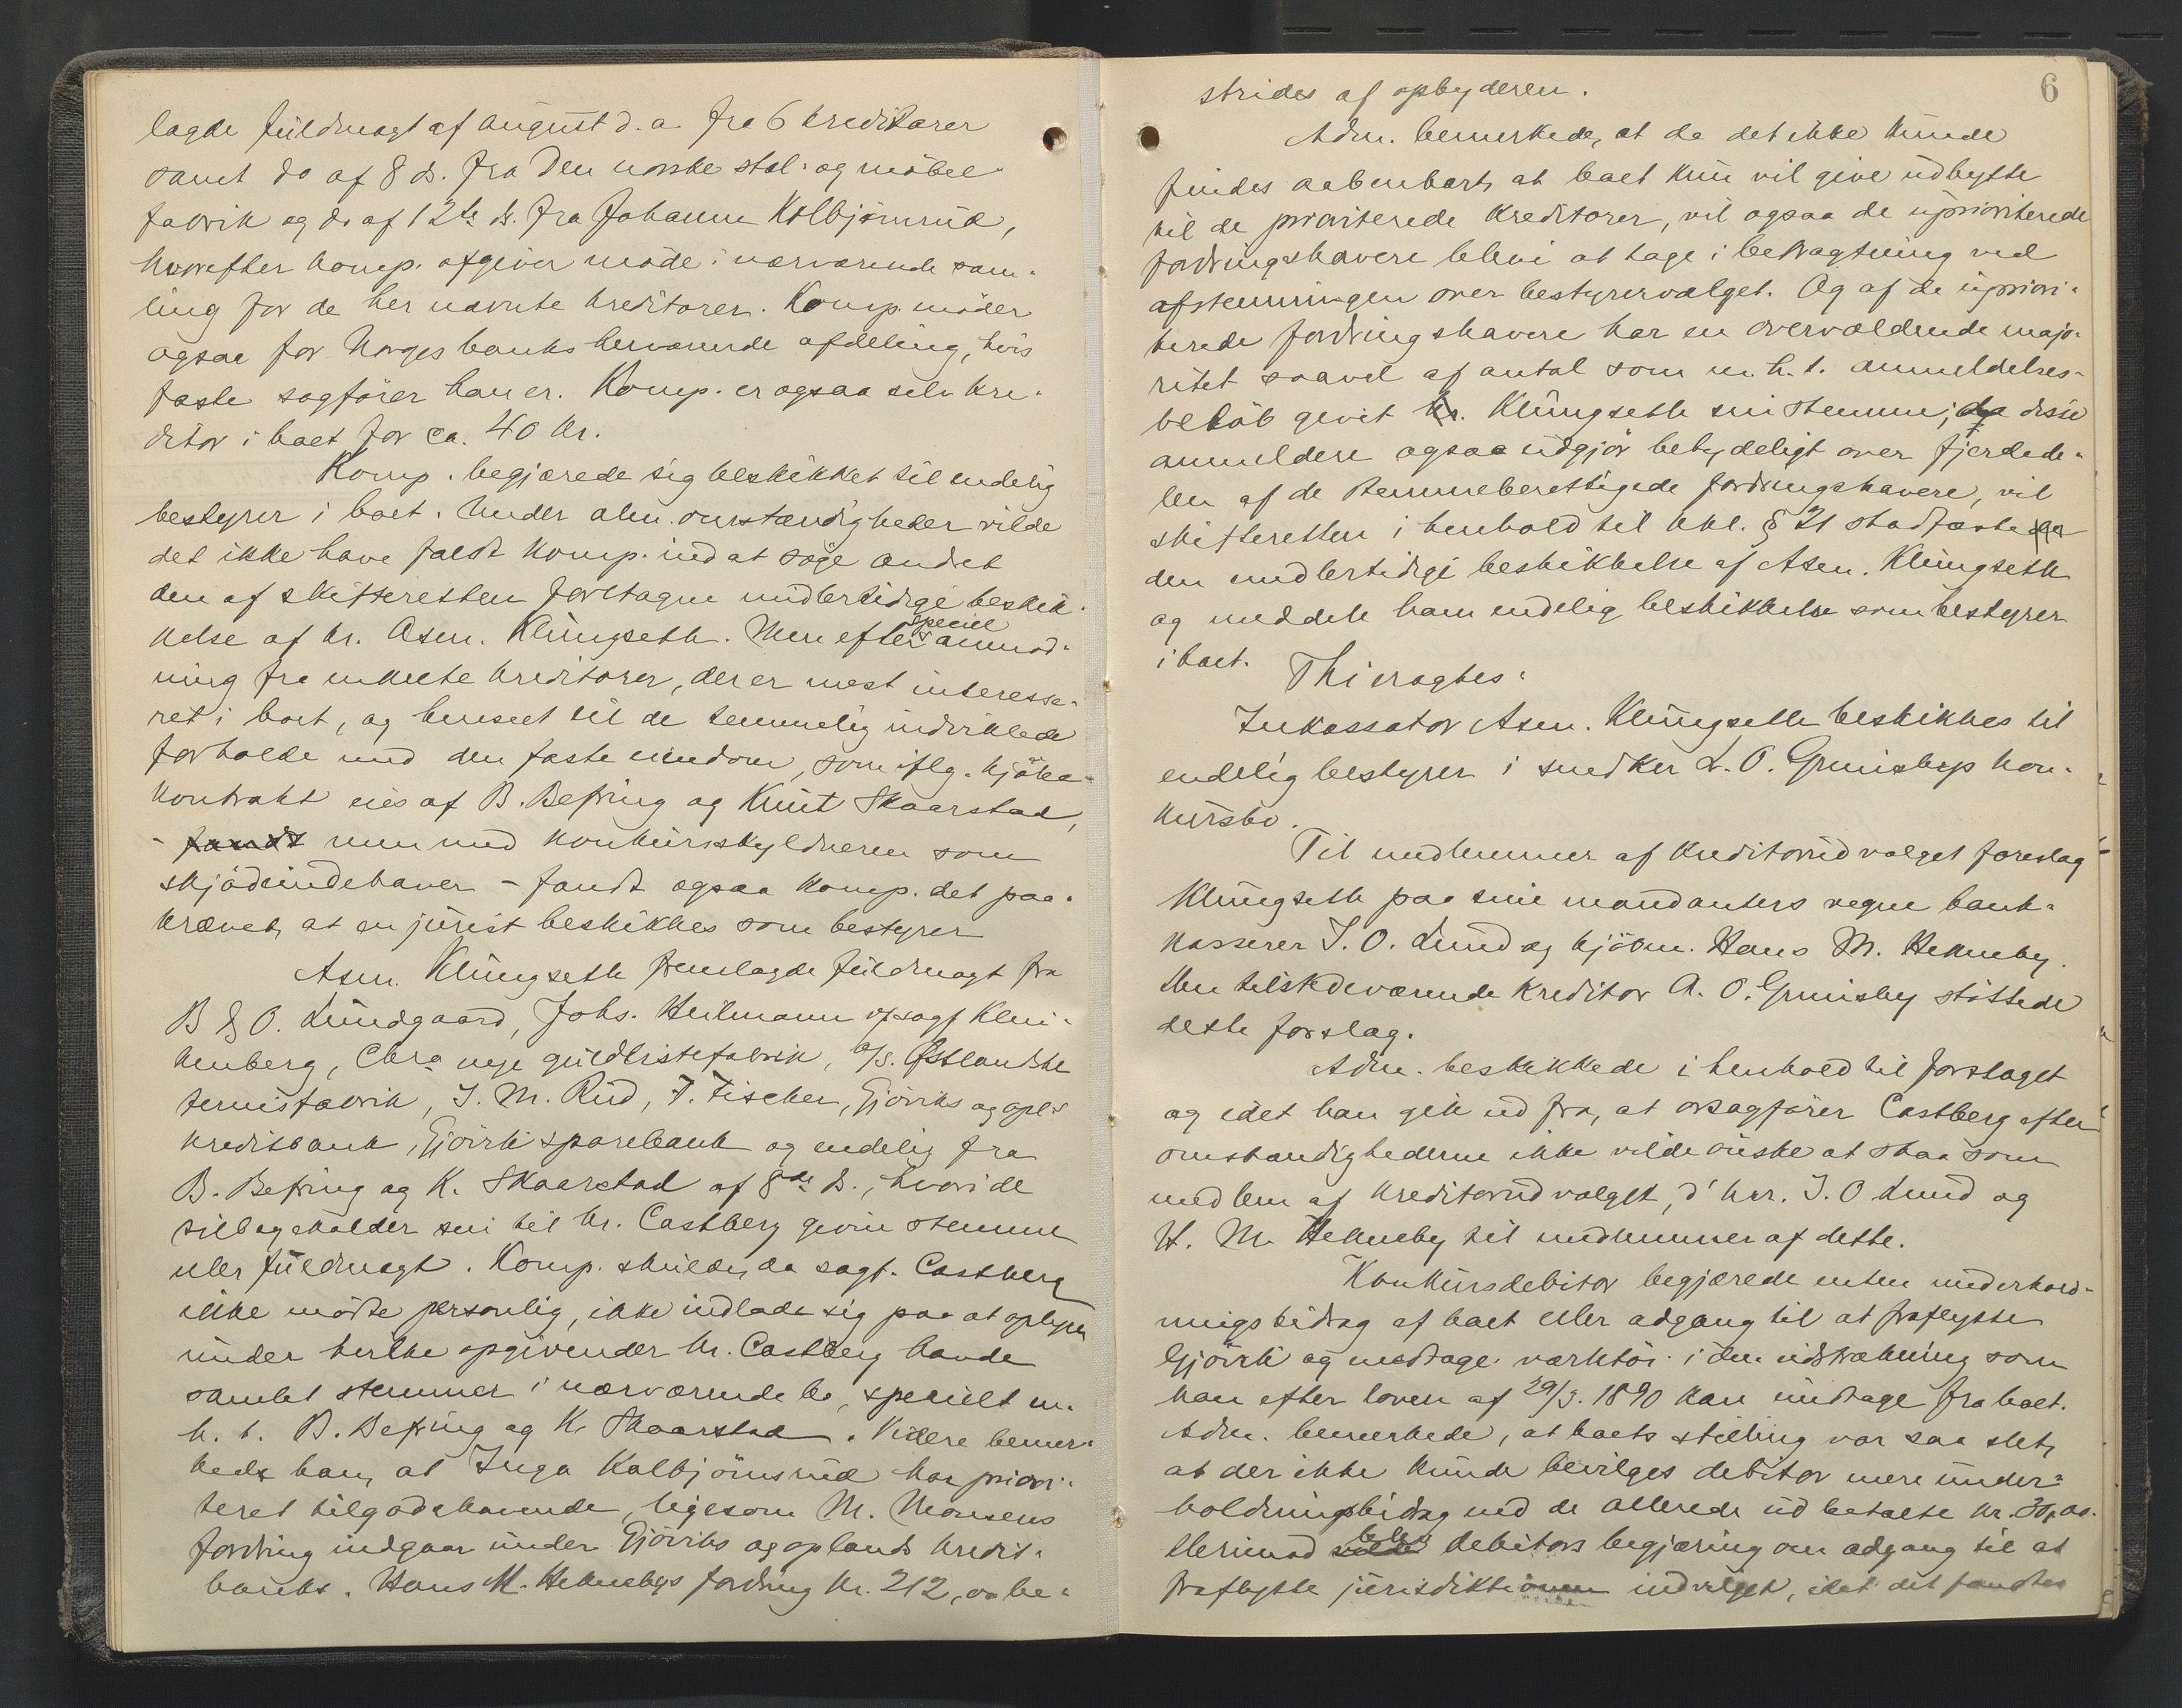 lagde fuldmagt af august d. a. fra 6 kreditorer
samt do af 8 ds. fra Den norske stol- og møbel-
fabrik og do af 12te ds. fra Johanne Kolbjørnrud,
hvorefter komp. afgiver møde i nærværende sam-
ling for de her nævnte kreditorer. Komp. møder
ogsaa for Norges banks herværende afdeling, hvis
faste sagfører han er. Komp. er ogsaa selv kre-
ditor i boet for ca. 40 kr.
Komp. begjærede sig beskikket til endelig
bestyrer i boet. Under alm. omstændigheder vilde
det ikke have faldt komp. ind at søge andret
den af skifteretten foretagne midlertidige beskik-
kelse af hr. Asm. Klungseth. Men efter speciel anmod-
ning fra enkelte kreditorer, der er mest interesse-
ret i boet, og henseet til de temmelig indviklede
forholde med den faste eiendom, som iflg. kjøbe-
kontrakt eies af B. Befring og Knut Skaarstad,
- fandt men med konkursskyldneren som
skjødeindehaver - fandt ogsaa komp. det paa-
krævet, at en jurist beskikkes som bestyrer
Asm. Klungseth fremlagde fuldmagt fra
B & O. Lundgaard, Johs. Heilmann o/sagf Klin-
kenberg, Chra nye guldlistefabrik, A/S. Østlandske
fernisfabrik, J. M. Rud, F. Fischer, Gjøviks og opl.s
kreditbank, Gjøvik sparebank og endelig fra
B. Befring og K. Skaarstad af 8de ds., hvori de
tilbagekalder sin til hr. Castberg givne stemme
eller fuldmagt. Komp. skulde, da sagf. Castberg
ikke mødte personlig, ikke indlade sig paa at oplyse
under hvilke opgivender hr. Castberg havde
samlet stemmer i nærværende bo, specielt m.
h. t. B. Befring og K. Skaarstad. Videre bemer-
kede han, at Inga Kolbjørnsrud har priori-
teret tilgodehavende, ligesom M. Monsens
fordring indgaar under Gjøviks og oplands kredit-
banks. Hans M. Helmebys fordring kr. 212,00 be-
6
strides af opbyderen.
Adm. bemerkede, at da det ikke kunde
findes aabenbart, at boet kun vil give udbytte
til de prioriterede kreditorer, vil ogsaa de uprioriterede
fordringshavere blive at tage i betragtning ved
afstemningen over bestyrervalget. Og af de upriori-
terede fordringshavere har en overvældende majo-
ritet saavel af antal som m. h. t. anmeldelses-
beløb givet hr. Klungseth sin stemme; da disse
anmeldere ogsaa udgjør betydeligt over fjerdede-
len af de stemmeberettigede fordringshavere, vil
skifteretten i henhold til kkl. § 21 stadfæste
den midlertidige beskikkelse af Asm. Klungseth
og meddele ham endelig beskikkelse som bestyrer
i boet.
Thi eragtes:
Inkassator Asm. Klungseth beskikkes til
endelig bestyrer i snedker L. O. Grimsbys kon-
kursbo.
Til medlemmer af kreditorudvalget foreslog
Klungseth paa sine mandanters vegne bank-
kasserer J. O. Lund og kjøbm. Hans M. Helmeby.
Den tilstedeværende kreditor A. O. Grimsby støttede
dette forslag.
Adm. beskikkede i henhold til forslaget
og idet han gik ud fra, at o/sagfører Castberg efter
omstændighederne ikke vilde ønske at staa som
medlem af kreditorudvalget, d'hrr. J. O Lund og
H. M. Helmeby til medlemmer af dette.
Konkursdebitor begjærede enten underhold-
ningsbidrag af boet eller adgang til at fraflytte
Gjøvik og medtage værktøi i den udstrækning som
han efter loven af 29/3. 1890 kan undtage fra boet.
Adm. bemerkede, at boets stilling var saa slet,
at der ikke kunde bevilges debitor mere under-
holdningsbidrag end de allerede udbetalte kr. 30,00.
Derimod blev debitors begjæring om adgang til at
fraflytte jurisdiktionen indvilget, idet det fandtes